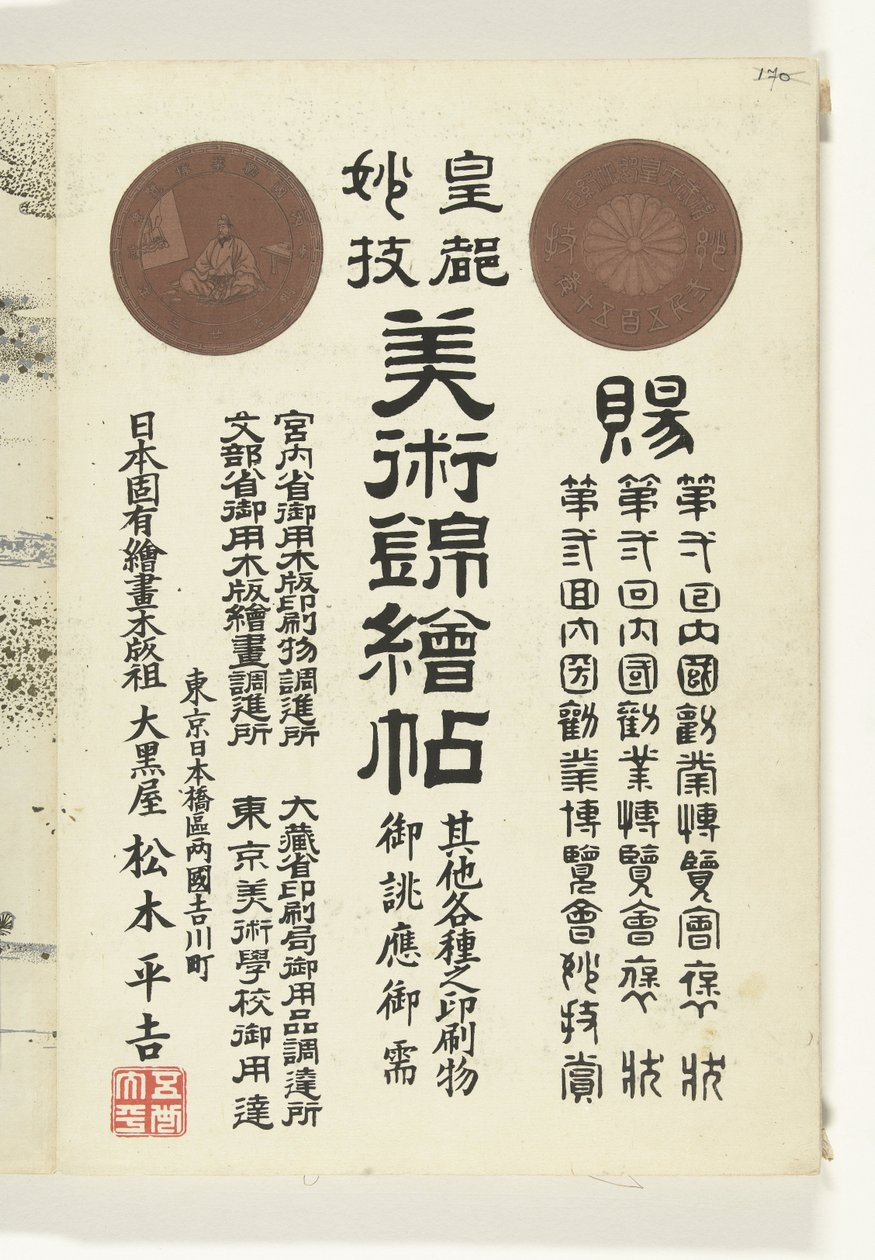 170
賜
第弍回内國勸業博覽會褒狀
第弍回内國勸業博覽會褒狀
第弎回内國勸業博覽會妙技賞
妙技
皇都
妙技
美術錦繪帖
其他各種之印刷物
御誂應御需
宮内省御用木版印刷物調進所
文部省御用木版繪畫調進所
大藏省印刷局御用品調達所
東京美術學校御用達
東京日本橋區兩國吉川町
日本固有繪畫木版祖 大黒屋 松木平吉